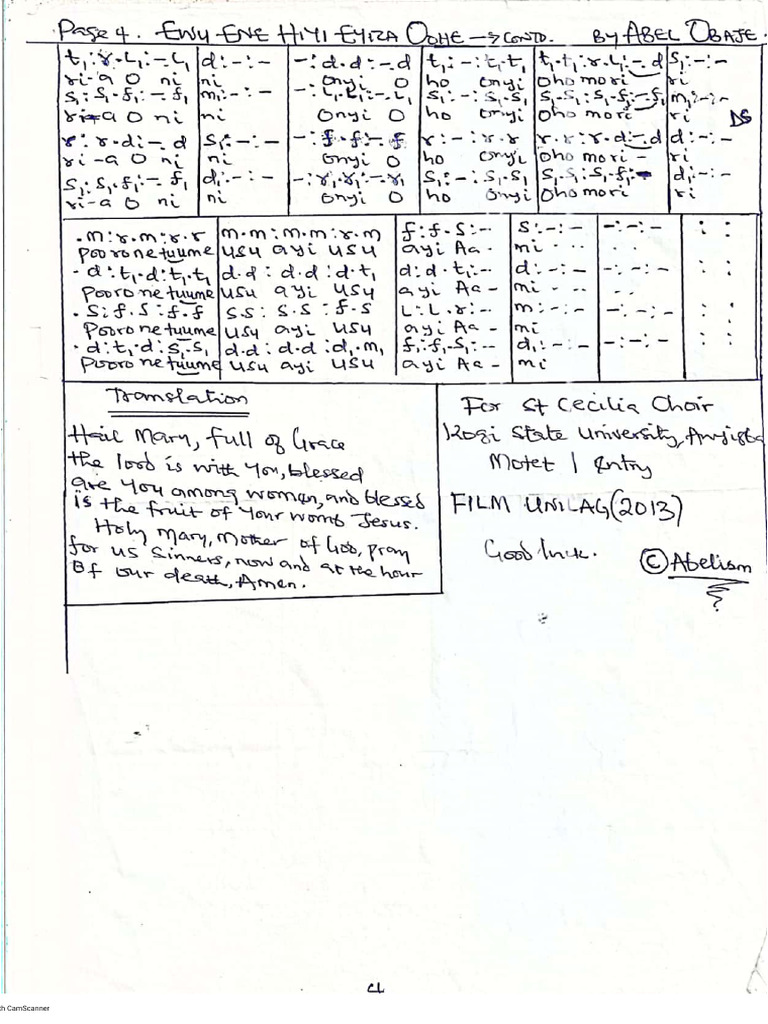 Page 4. EWU ENE HIYI EYIZA OOHE → CONTD. BY ABEL OBAJE.
t₁:r.L₁:-L₁ d:-:- -:d.d:-d t₁:-:t₁.t₁ t₁.t₁:r.L₁:-d s₁:-:-
ri-a O ni ni onyi O ho onyi Oho mori ri
s₁:s₁.f₁:-.f₁ m₁:-:- -:L₁.L₁:-.L₁ s₁:-:s₁.s₁ s₁.s₁:s₁.f₁:-f₁ m₁:-:-
ri-a O ni ni Onyi O ho onyi Oho mori ri DS
r:r.d:-.d s₁:-:- -:f.f:-.f r:-:r.r r.r:r.d:-.d d:-:-
ri-a O ni ni Onyi O ho onyi Oho mori - ri
s₁:s₁.f₁:-.f₁ d₁:-:- -:r₁.r₁:-.r₁ s₁:-:s₁.s₁ s₁.s₁:s₁.f₁:- d₁:-:-
ri-a O ni ni Onyi O ho onyi Oho mori ri
.m:r.m:r.r m.m:m.m:r.m f:f.s:-- s:-:- -:-:- : :
Pooro ne tuume usu ayi usu ayi Aa- mi
.d:t₁.d:t₁.t₁ d.d:d.d:d.t₁ d:d.t₁:-- d:-:- -:-:- : :
Pooro ne tuume usu ayi usu ayi Aa- mi
.s:f.s:f.f s.s:s.s:f.s L:L.r:-- m:-:- -:-:- : :
Pooro ne tuume usu ayi usu ayi Aa- mi
.d:t₁.d:s₁.s₁ d.d:d.d:d₁.m₁ f₁:f₁.s₁:-- d₁:-:- -:-:- : :
Pooro ne tuume usu ayi usu ayi Aa- mi
Translation
Hail Mary, full of Grace
the lord is with You, blessed
are You among women, and blessed
is the fruit of Your womb Jesus.
Holy Mary, Mother of God, pray
for us Sinners, now and at the hour
Of our death, Amen.
For St Cecilia Choir
Kogi State University, Anyigba
Motet 1 Entry
FILM UNILAG (2013)
Good luck.
© Abelism
th CamScanner